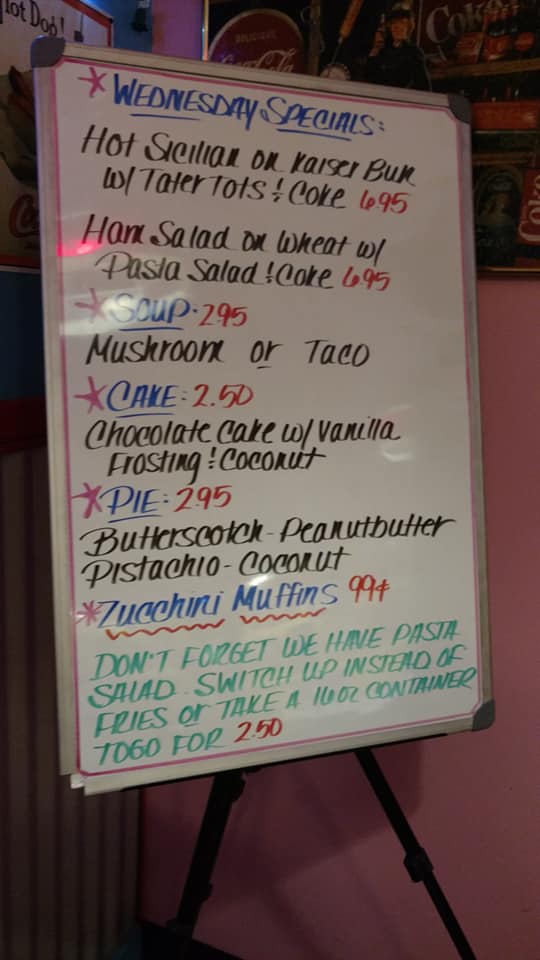 Hot Dog!
DELICIOUS
Coca-Cola
Coke
* WEDNESDAY SPECIALS:
Hot Sicilian on Kaiser Bun
w/ Tater Tots & Coke 6.95
Ham Salad on Wheat w/
Pasta Salad & Coke 6.95
* SOUP: 2.95
Mushroom or Taco
* CAKE: 2.50
Chocolate Cake w/ Vanilla
Frosting & Coconut
* PIE: 2.95
Butterscotch - Peanutbutter
Pistachio - Coconut
* Zucchini Muffins 99¢
DON'T FORGET WE HAVE PASTA
SALAD. SWITCH UP INSTEAD OF
FRIES OR TAKE A 16oz CONTAINER
TOGO FOR 2.50